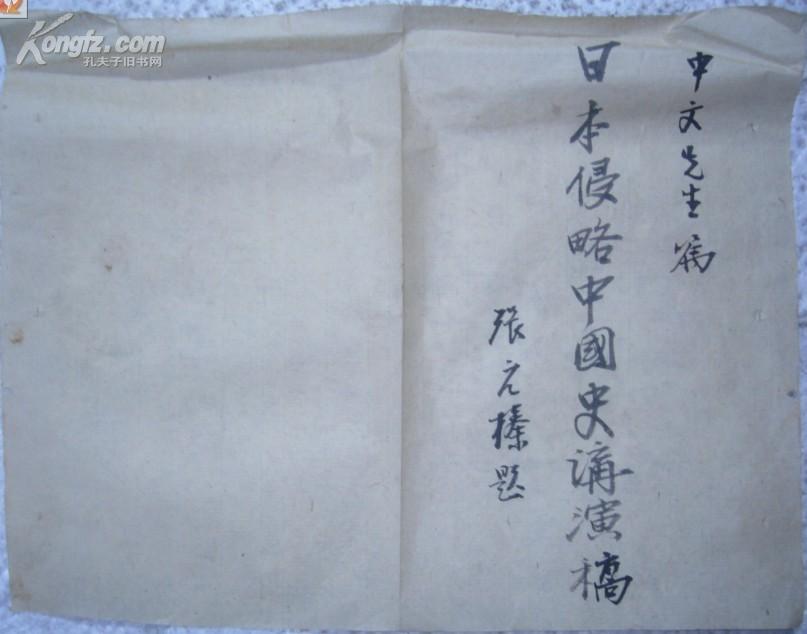 Kongfz.com
孔夫子旧书网
申文先生篇
日本侵略中國史講演稿
張元榛題